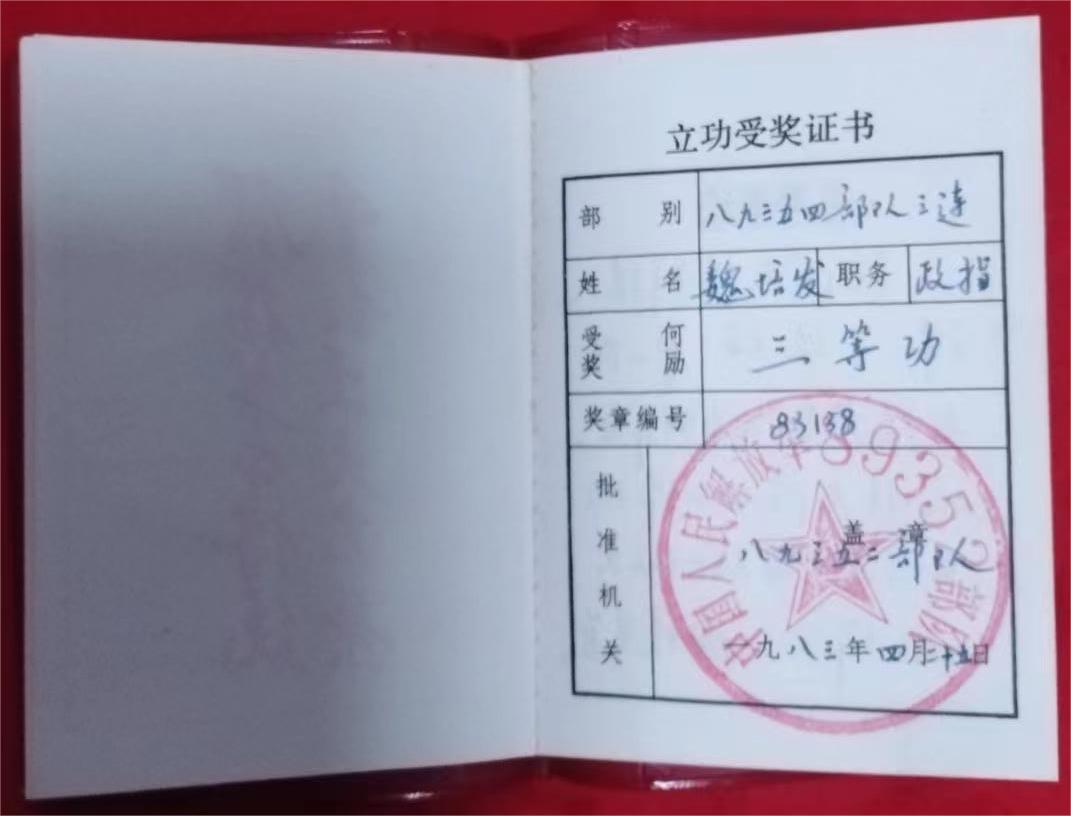 立功受奖证书
部别 八九三五四部队三连
姓名 魏培发 职务 政指
受何奖励 三等功
奖章编号 83138
批准机关
中国人民解放军89352部队
盖章
八九三五二部队
一九八三年四月二十五日